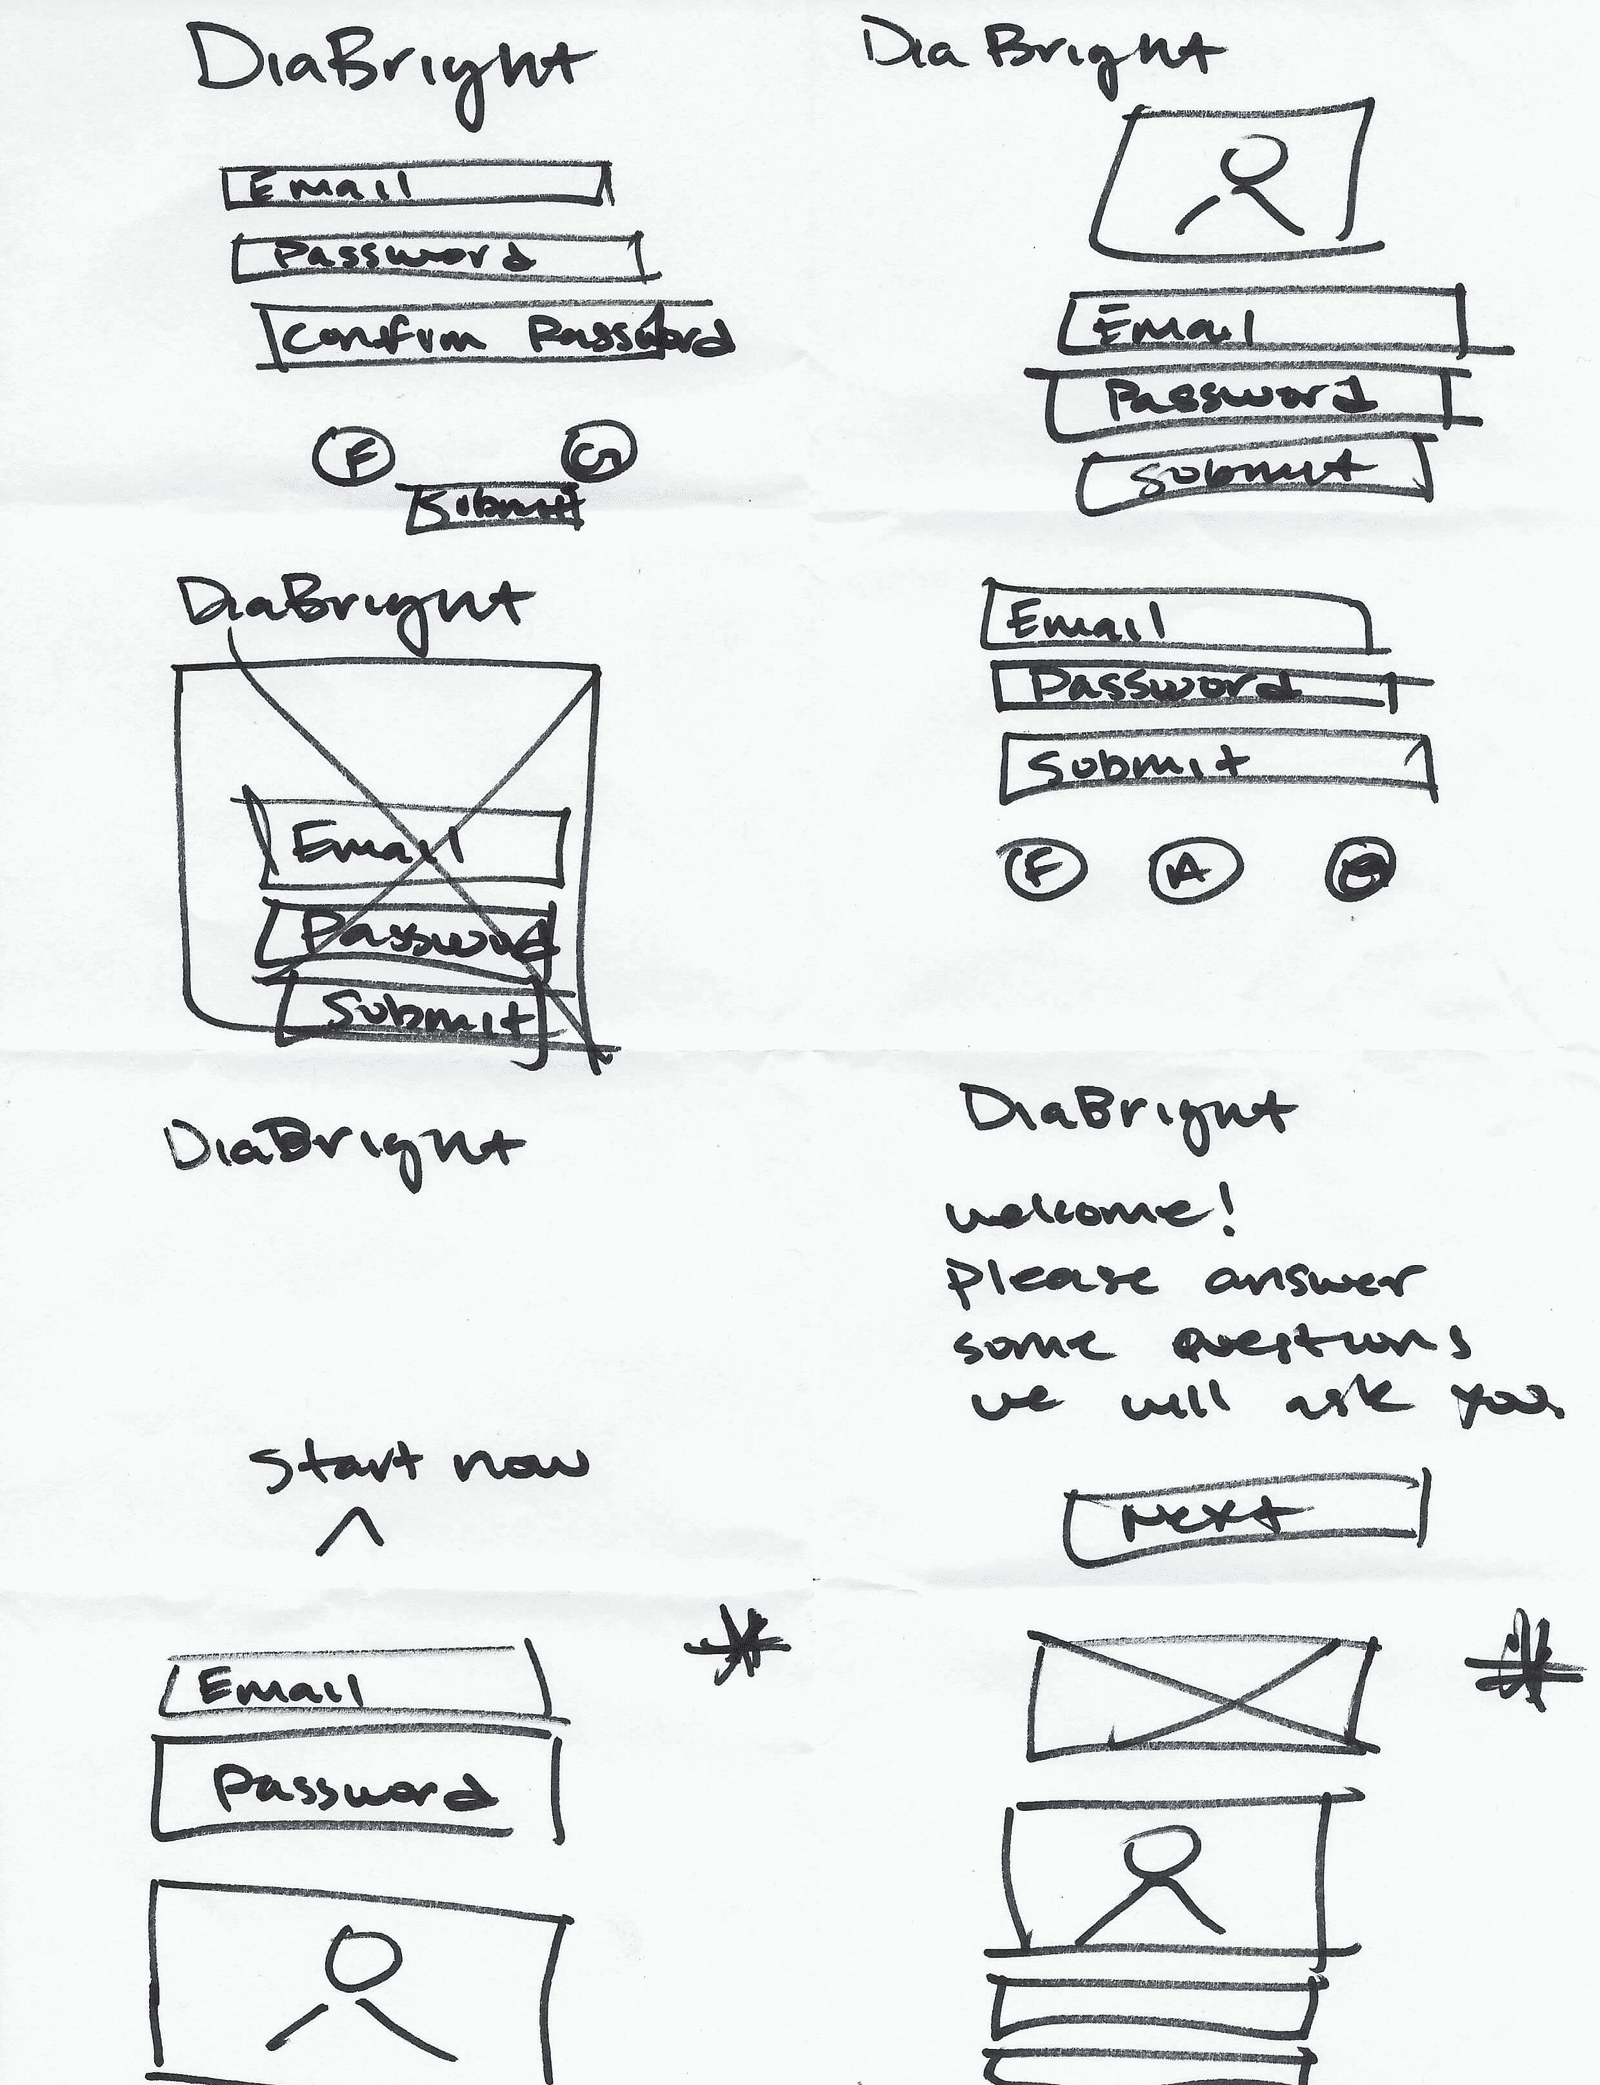 DiaBright
Email
Password
Confirm Password
F G
Submit
Dia Bright
Email
Password
Submit
DiaBright
Email
Password
Submit
Email
Password
Submit
F A
DiaBright
start now
DiaBright
welcome!
please answer
some questions
we will ask you.
Next
Email
Password